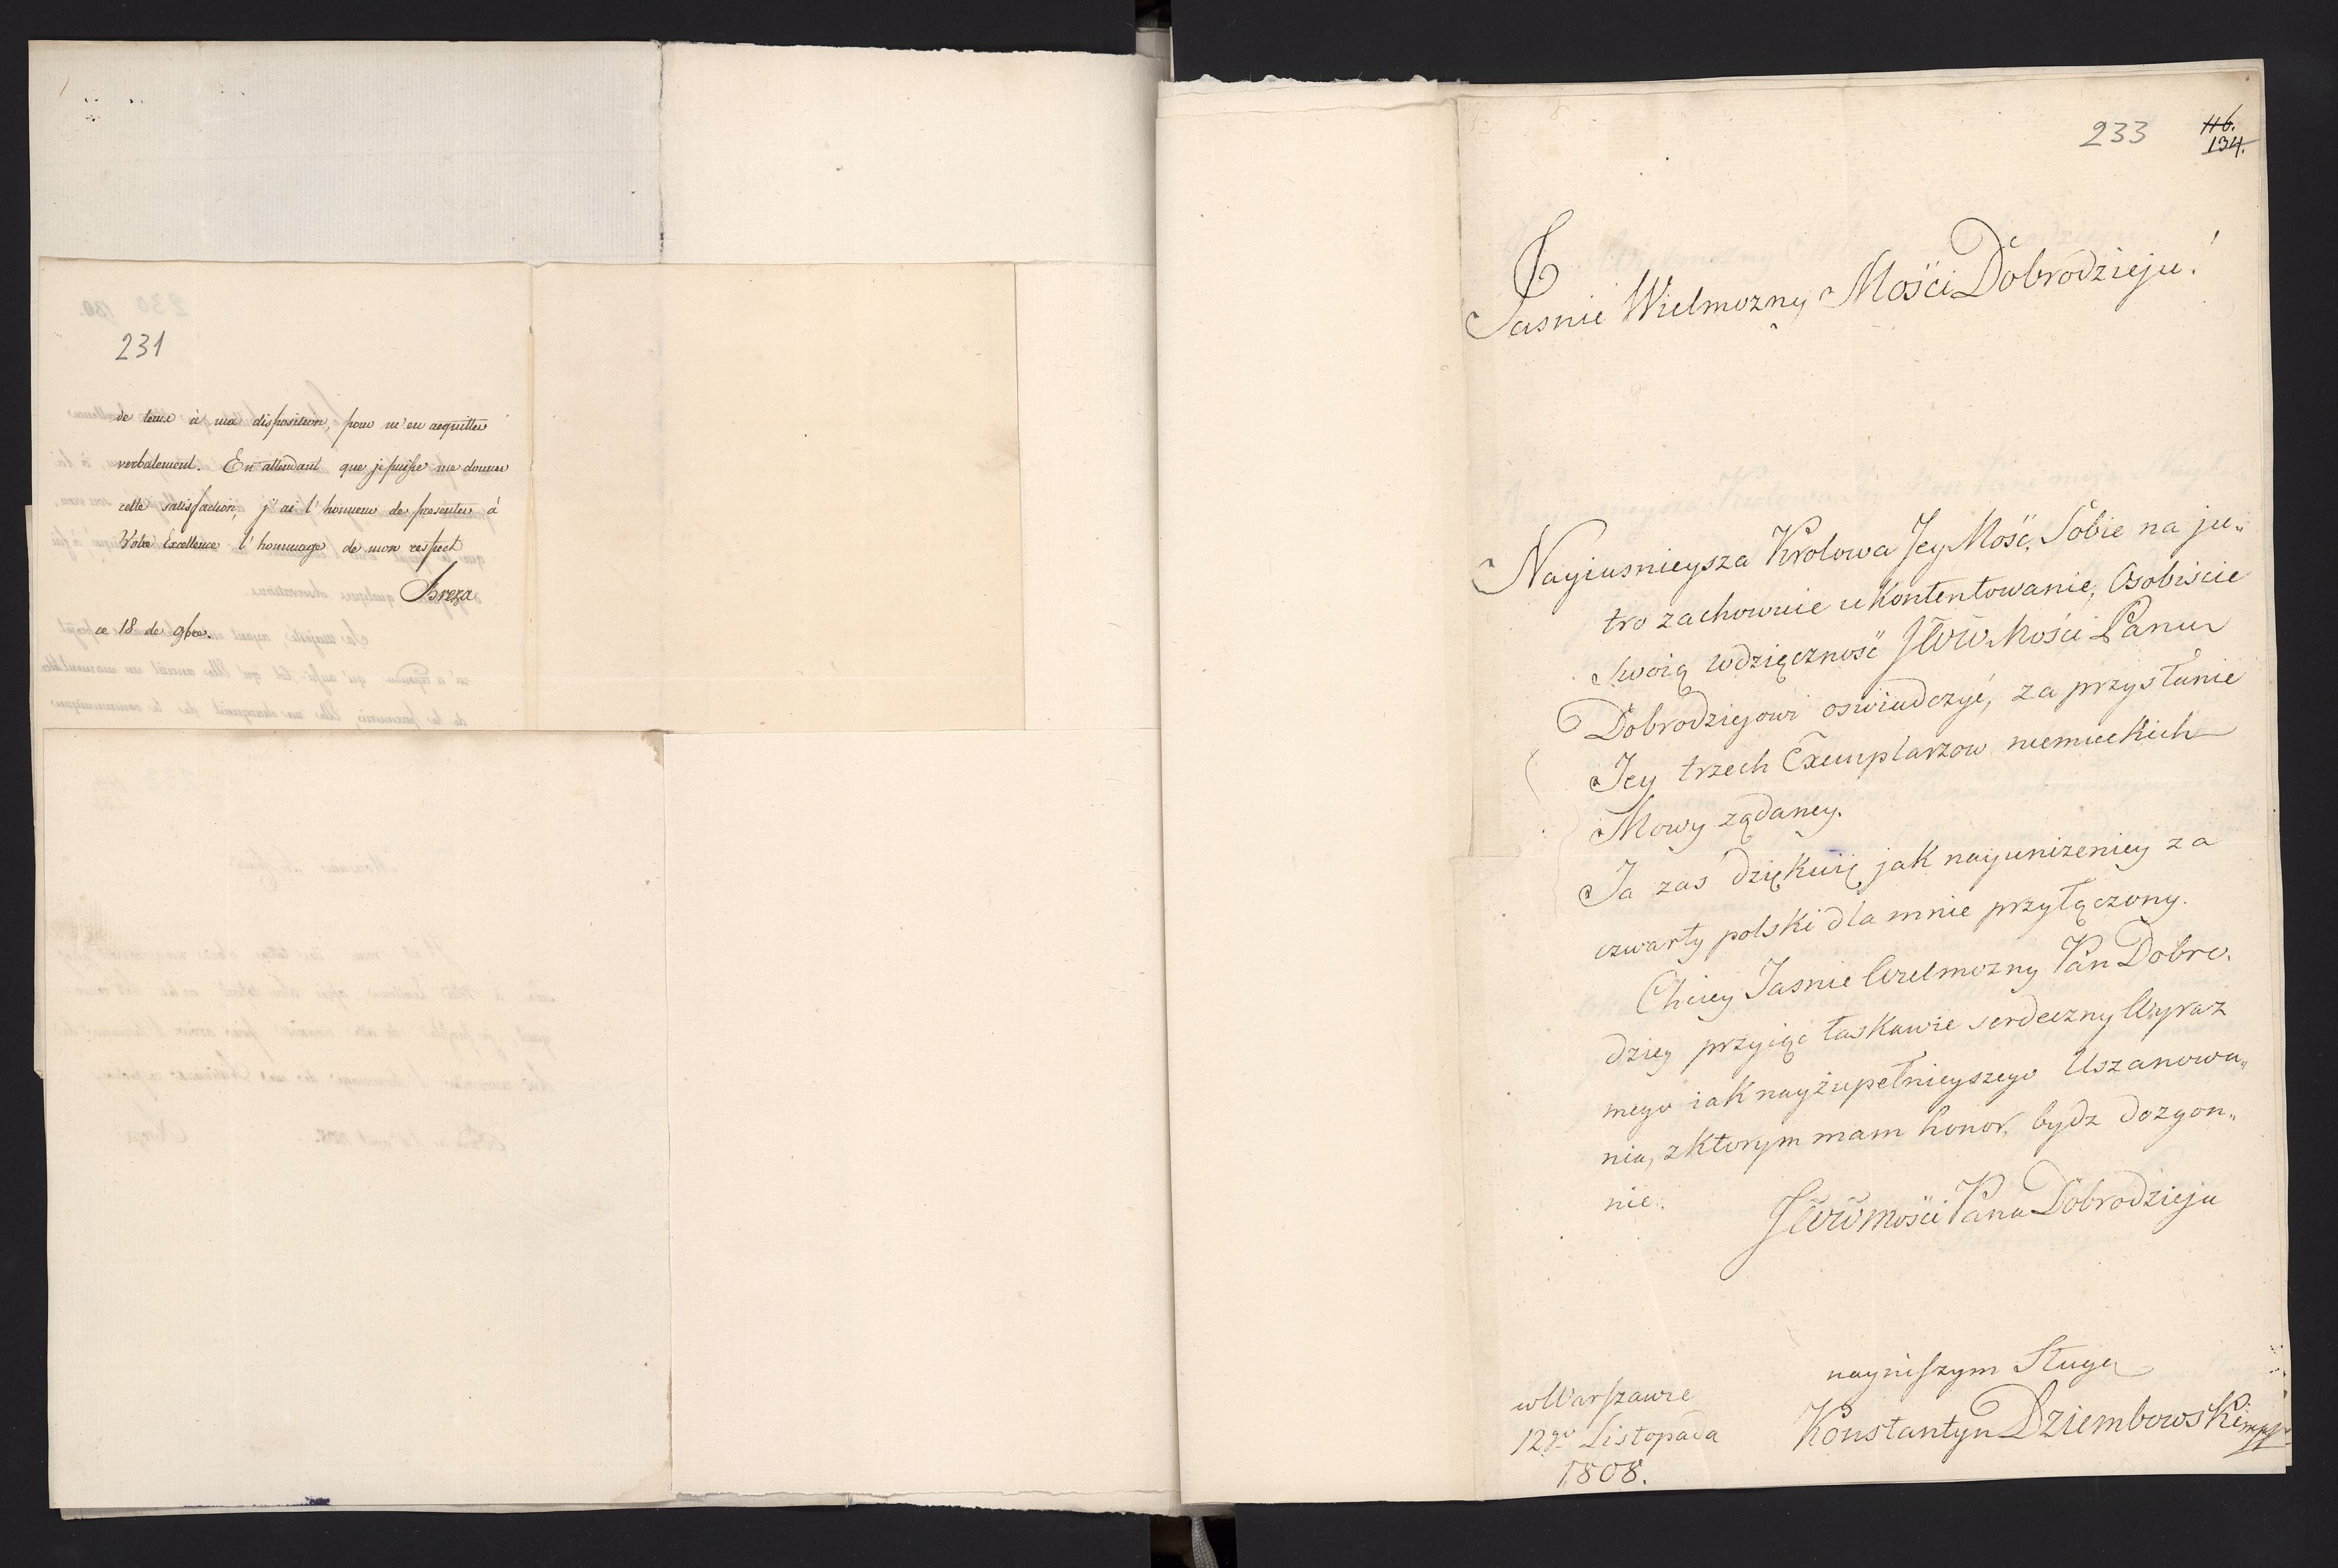 231
de tems à ma disposition, pour m'en acquitter
verbalement. En attendant que je puisse me donner
cette satisfaction, j'ai l'honneur de presenter à
Votre Excellence l'hommage de mon respect
Breza
ce 18 de 9bre.
233
116.
134.
Jasnie Wielmozny Mości Dobrodzieju!
Nayiasnieysza Krolowa Jey Mość, Sobie na ju„
tro zachowuie ukontentowanie, Osobiscie
swoią wdzięczność JWW Mości Panu
Dobrodziejowi oswiadczyć, za przysłanie
Jey trzech Exemplarzow niemieckich
Mowy ządaney.
Ja zas dziękuię jak nayunizeniey za
czwarty polski dla mnie przyłączony.
Chciey Jasnie Wielmozny Pan Dobro.
dziey przyiąć łaskawie serdeczny Wyraz
mego iak nayzupełnieyszego Uszanowa„
nia, z ktorym mam honor, bydz dozgon„
nie.
JWW Mości Pana Dobrodzieja
nayniszym Sługą
Konstantyn Dziembowski mpp
w Warszawie
12go Listopada
1808.